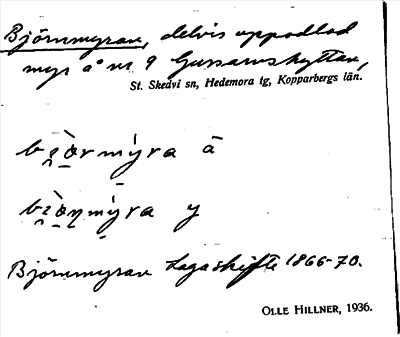 Björnmyran, delvis uppodlad
myr å nr 9 Gussarvshyttan,
St. Skedvi sn, Hedemora tg, Kopparbergs län.
Björnmyran Laga skifte 1866-70.
OLLE HILLNER, 1936.